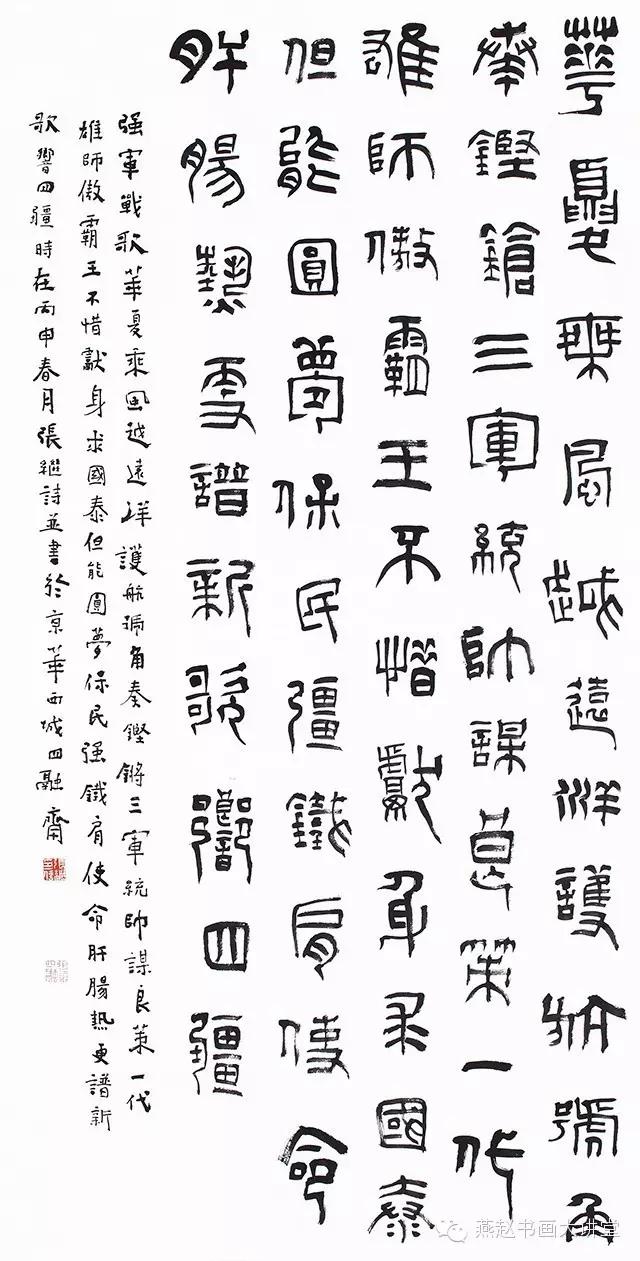 華夏乘風越遠洋護航號角
奏鏗鎗三軍統帥謀良策一代
雄師傲霸王不惜獻身求國泰
但能圓夢保民彊鐵肩使命
肝腸熱更譜新歌響四疆
强軍戰歌華夏乘風越遠洋護航號角奏鏗鏘三軍統帥謀良策一代
雄師傲霸王不惜獻身求國泰但能圓夢保民强鐵肩使命肝腸熱更譜新
歌響四疆時在丙申春月張繼詩並書於京華西城四融齋
燕赵书画大讲堂